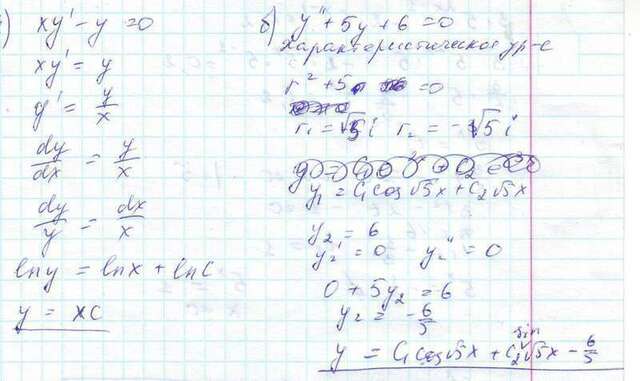 ) xy' - y = 0
xy' = y
y' = y/x
dy/dx = y/x
dy/y = dx/x
ln y = ln x + ln C
y = xC
б) y'' + 5y + 6 = 0
характеристическое ур-е
r² + 5 = 0
r₁ = √5 i r₂ = -√5 i
y₁ = C₁ cos √5x + C₂ √5x
y₂ = 6
y₂' = 0 y₂'' = 0
0 + 5y₂ = 6
y₂ = -6/5
y = C₁ cos √5x + C₂ sin √5x - 6/5